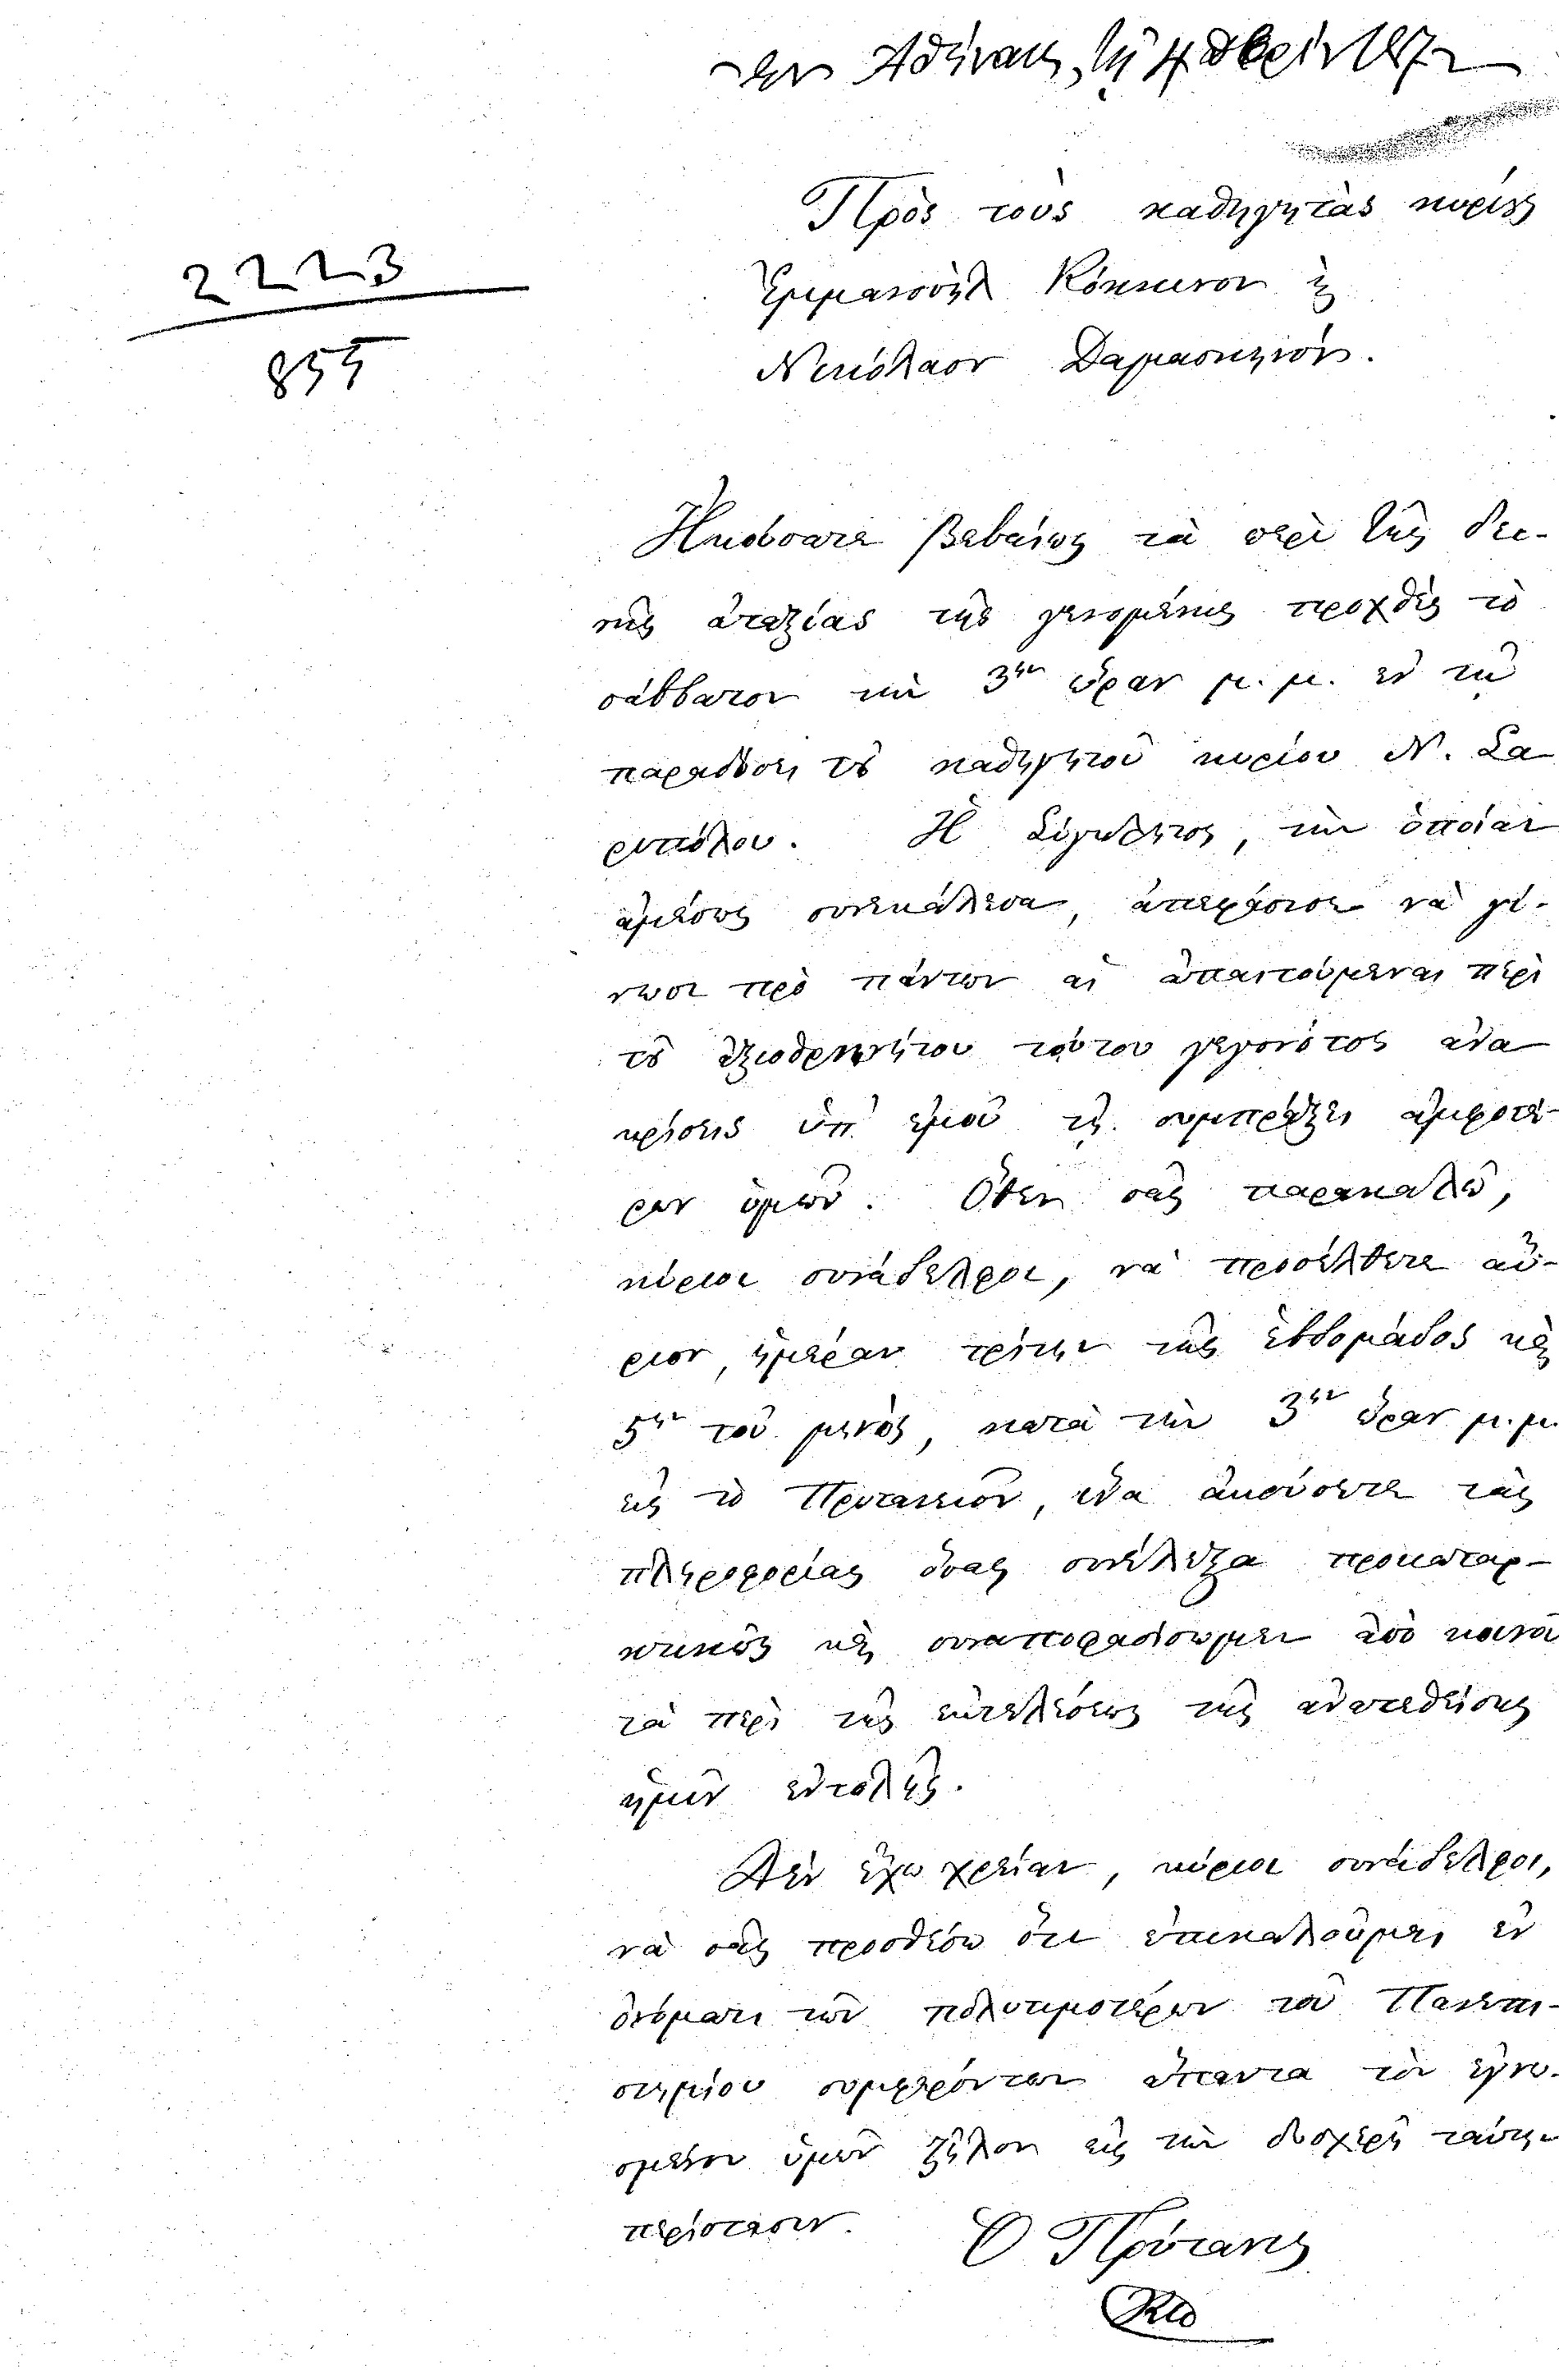 Ἐν Ἀθήναις, τῇ 4 Xβρίου 187
2223
855
Πρὸς τοὺς καθηγητὰς κυρίους
Ἐμμανουὴλ Κόκκινον καὶ
Νικόλαον Δαμασκηνόν.
Ἠκούσατε βεβαίως τὰ περὶ τῆς δει-
νῆς ἀταξίας τῆς γενομένης προχθὲς τὸ
σάββατον τὴν 3ην ὥραν μ.μ. ἐν τῇ
παραδόσει τοῦ καθηγητοῦ κυρίου Ν. Σα
ριπόλου. Ἡ Σύγκλητος, τὴν ὁποίαν
ἀμέσως συνεκάλεσα, ἀπεφάσισε νὰ γί-
νωσι πρὸ πάντων αἱ ἀπαιτούμεναι περὶ
τοῦ ἀξιοθρηνήτου τούτου γεγονότος ἀνα
κρίσεις ὑπ' ἐμοῦ τῇ συμπράξει ἀμφοτέ-
ρων ὑμῶν. Ὅθεν σᾶς παρακαλῶ,
κύριοι συνάδελφοι, νὰ προσέλθετε αὔ-
ριον, ἡμέραν τρίτην τῆς ἑβδομάδος καὶ
5ην τοῦ μηνὸς, κατὰ τὴν 3ην ὥραν μ.μ.
εἰς τὸ Πρυτανεῖον, ἵνα ἀκούσητε τὰς
πληροφορίας ὅσας συνέλεξα προκαταρ-
κτικῶς καὶ συναποφασίσωμεν ἀπὸ κοινοῦ
τὰ περὶ τῆς ἐκτελέσεως τῆς ἀνατεθείσης
ἡμῖν ἐντολῆς.
Δὲν ἔχω χρείαν, κύριοι συνάδελφοι,
νὰ σᾶς προσθέσω ὅτι ἐπικαλοῦμαι ἐν
ὀνόματι τῶν πολυτιμοτέρων τοῦ Πανεπι-
στημίου συμφερόντων ἅπαντα τὸν ἐγνω-
σμένον ὑμῶν ζῆλον εἰς τὴν δυσχερῆ ταύτην
περίστασιν.
Ὁ Πρύτανις